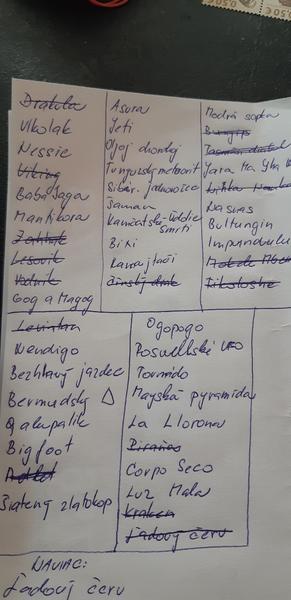 Drakula
Vlkolak
Nessie
Viking
Baba Jaga
Mantikora
Lesovik
Vodnik
Gog a Magog
Asura
Jeti
Olgoj chorchoj
Tunguzský meteorit
Sibír. jednorožec
Jaman
Kamčatské údolie
smrti
Biki
Ramajtači
čínsky drak
Modrá sopka
Bunyip
Yara Ma Yha
Nasnas
Bultungin
Impundulu
Tikoloshe
Leviatan
Wendigo
Bezhlavý jazdec
Bermudský Δ
Qalupalik
Bigfoot
Šialený zlatokop
Ogopogo
Roswellské UFO
Tornádo
Mayská pyramída
La Llorona
Piraňas
Corpo Seco
Luz Mala
Kraken
Ľadový červ
NAVIAC:
Ľadový červ